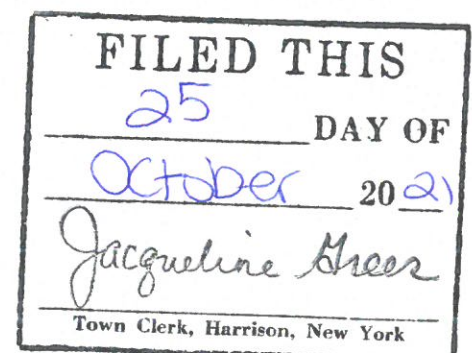 FILED THIS
25 DAY OF
October 20 21
Jacqueline Greer
Town Clerk, Harrison, New York